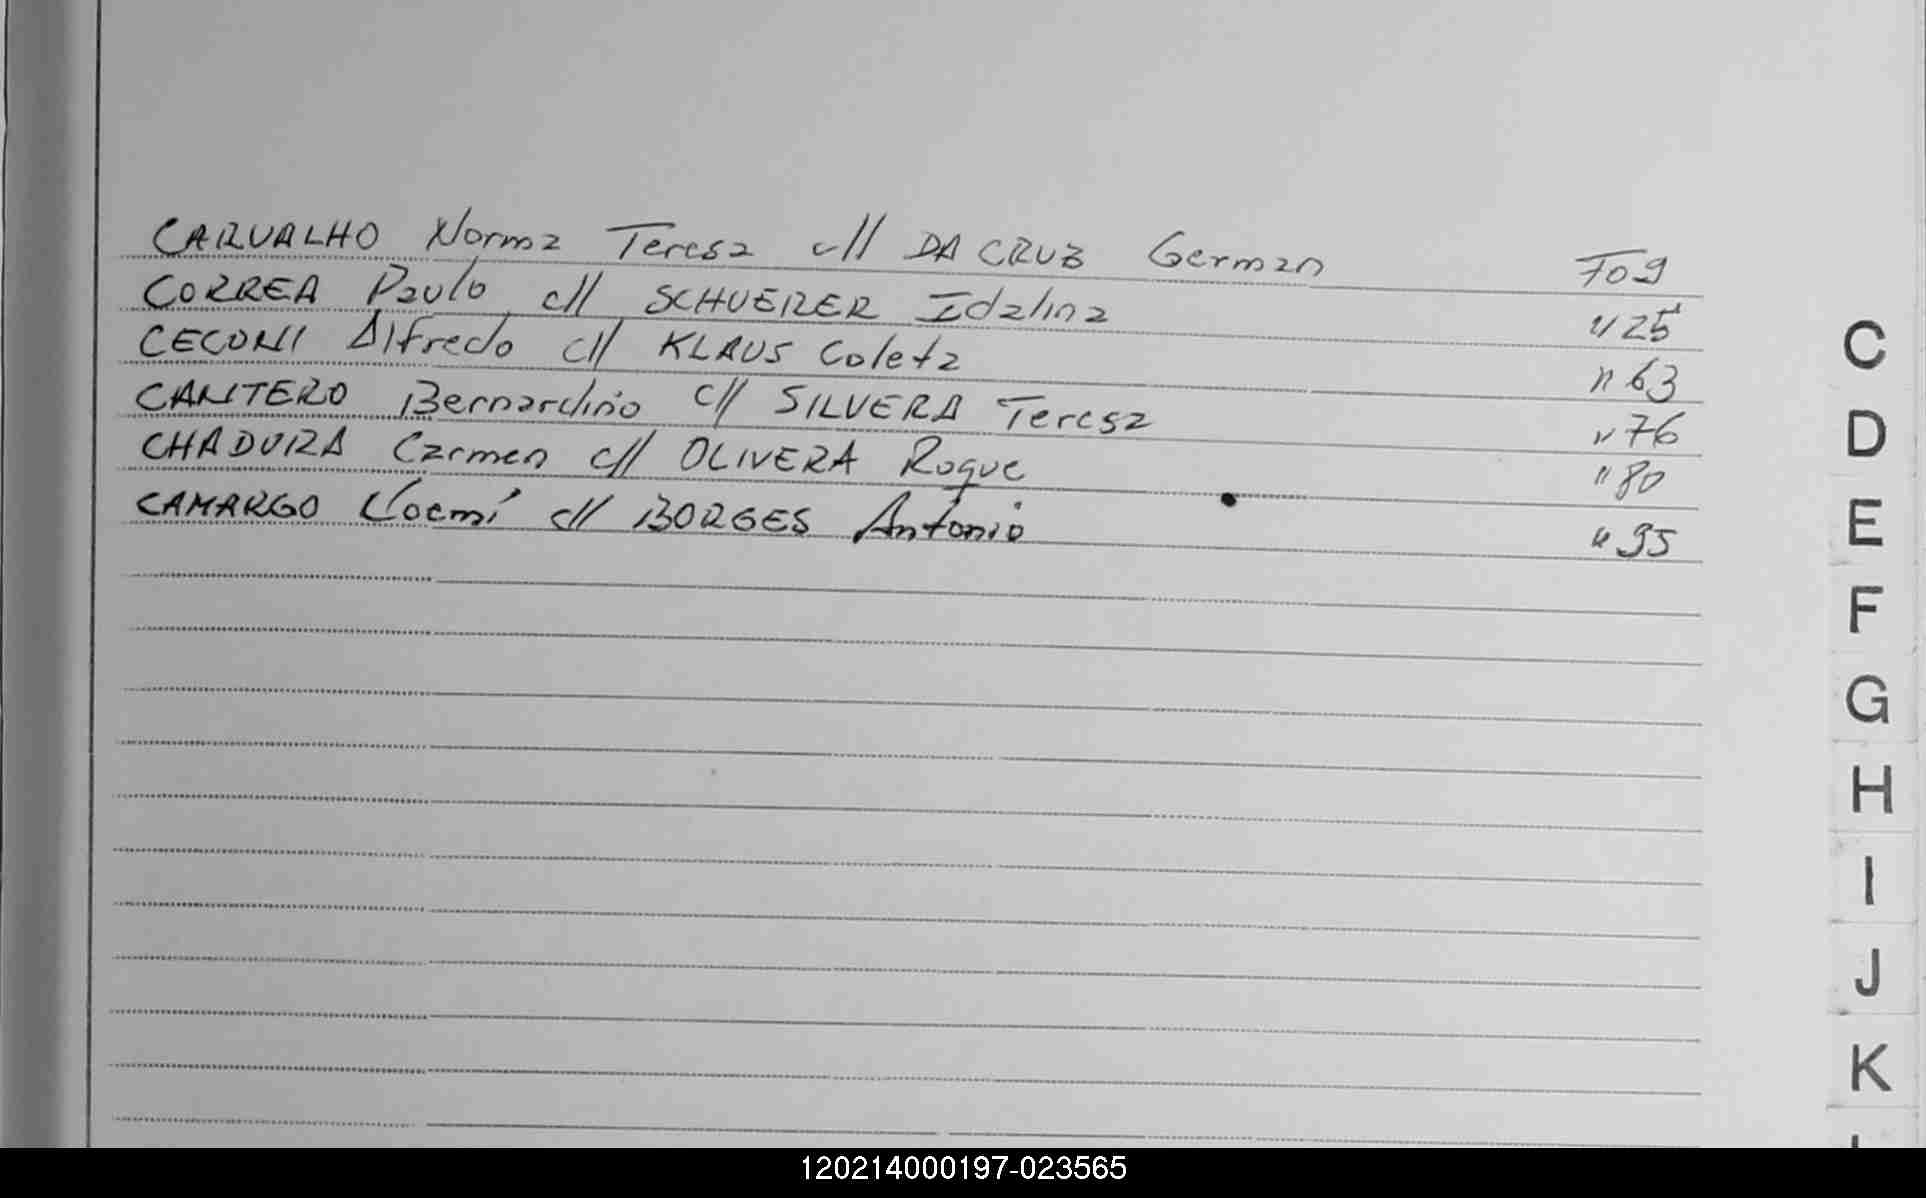 CARVALHO Norma Teresa c// DA CRUZ German Fo 9
CORREA Paulo c// SCHUERER Idalina " 25
CECONI Alfredo c// KLAUS Coleta " 63
CANTERO Bernardino c// SILVERA Teresa " 76
CHADVIRA Carmen c// OLIVERA Roque " 80
CAMARGO Noemí c// BORGES Antonio " 95
C
D
E
F
G
H
I
J
K
120214000197-023565